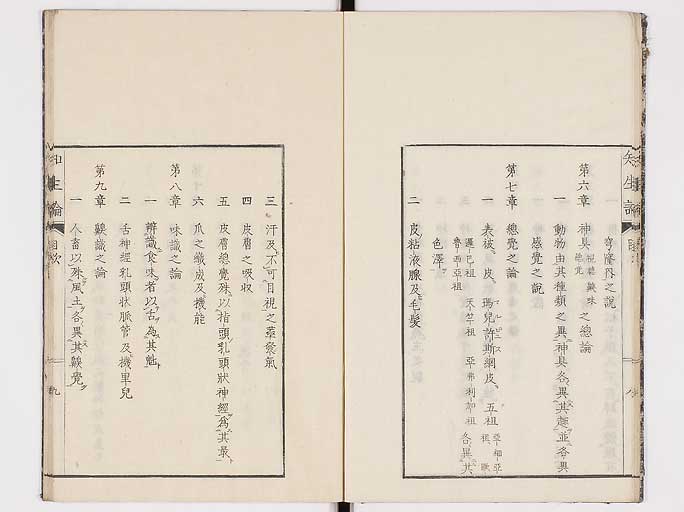 知生論
目次
八
一 穹窿界之説
第六章 神具視聴齅味總覺之總論
一 動物由其種類之異神具各異其趣並各異
感覺之説
第七章 總覺之論
一 表被、皮、瑪兒許斯網皮、五祖
護謨巴祖 天竺祖 亞弗利加祖 各異其
色澤
二 皮粘液腺及毛髪
三 汗及不可目視之蒸發氣
四 皮膚之吸收
五 皮膚總覺殊以指頭乳頭狀神經爲其最
六 爪之織成及機能
第八章 味識之論
一 辨識食味者以舌為其魁
二 舌神經乳頭狀脈管及機里兒
第九章 齅識之論
一 人畜以殊風土各異其齅覺
知生論
目次
九